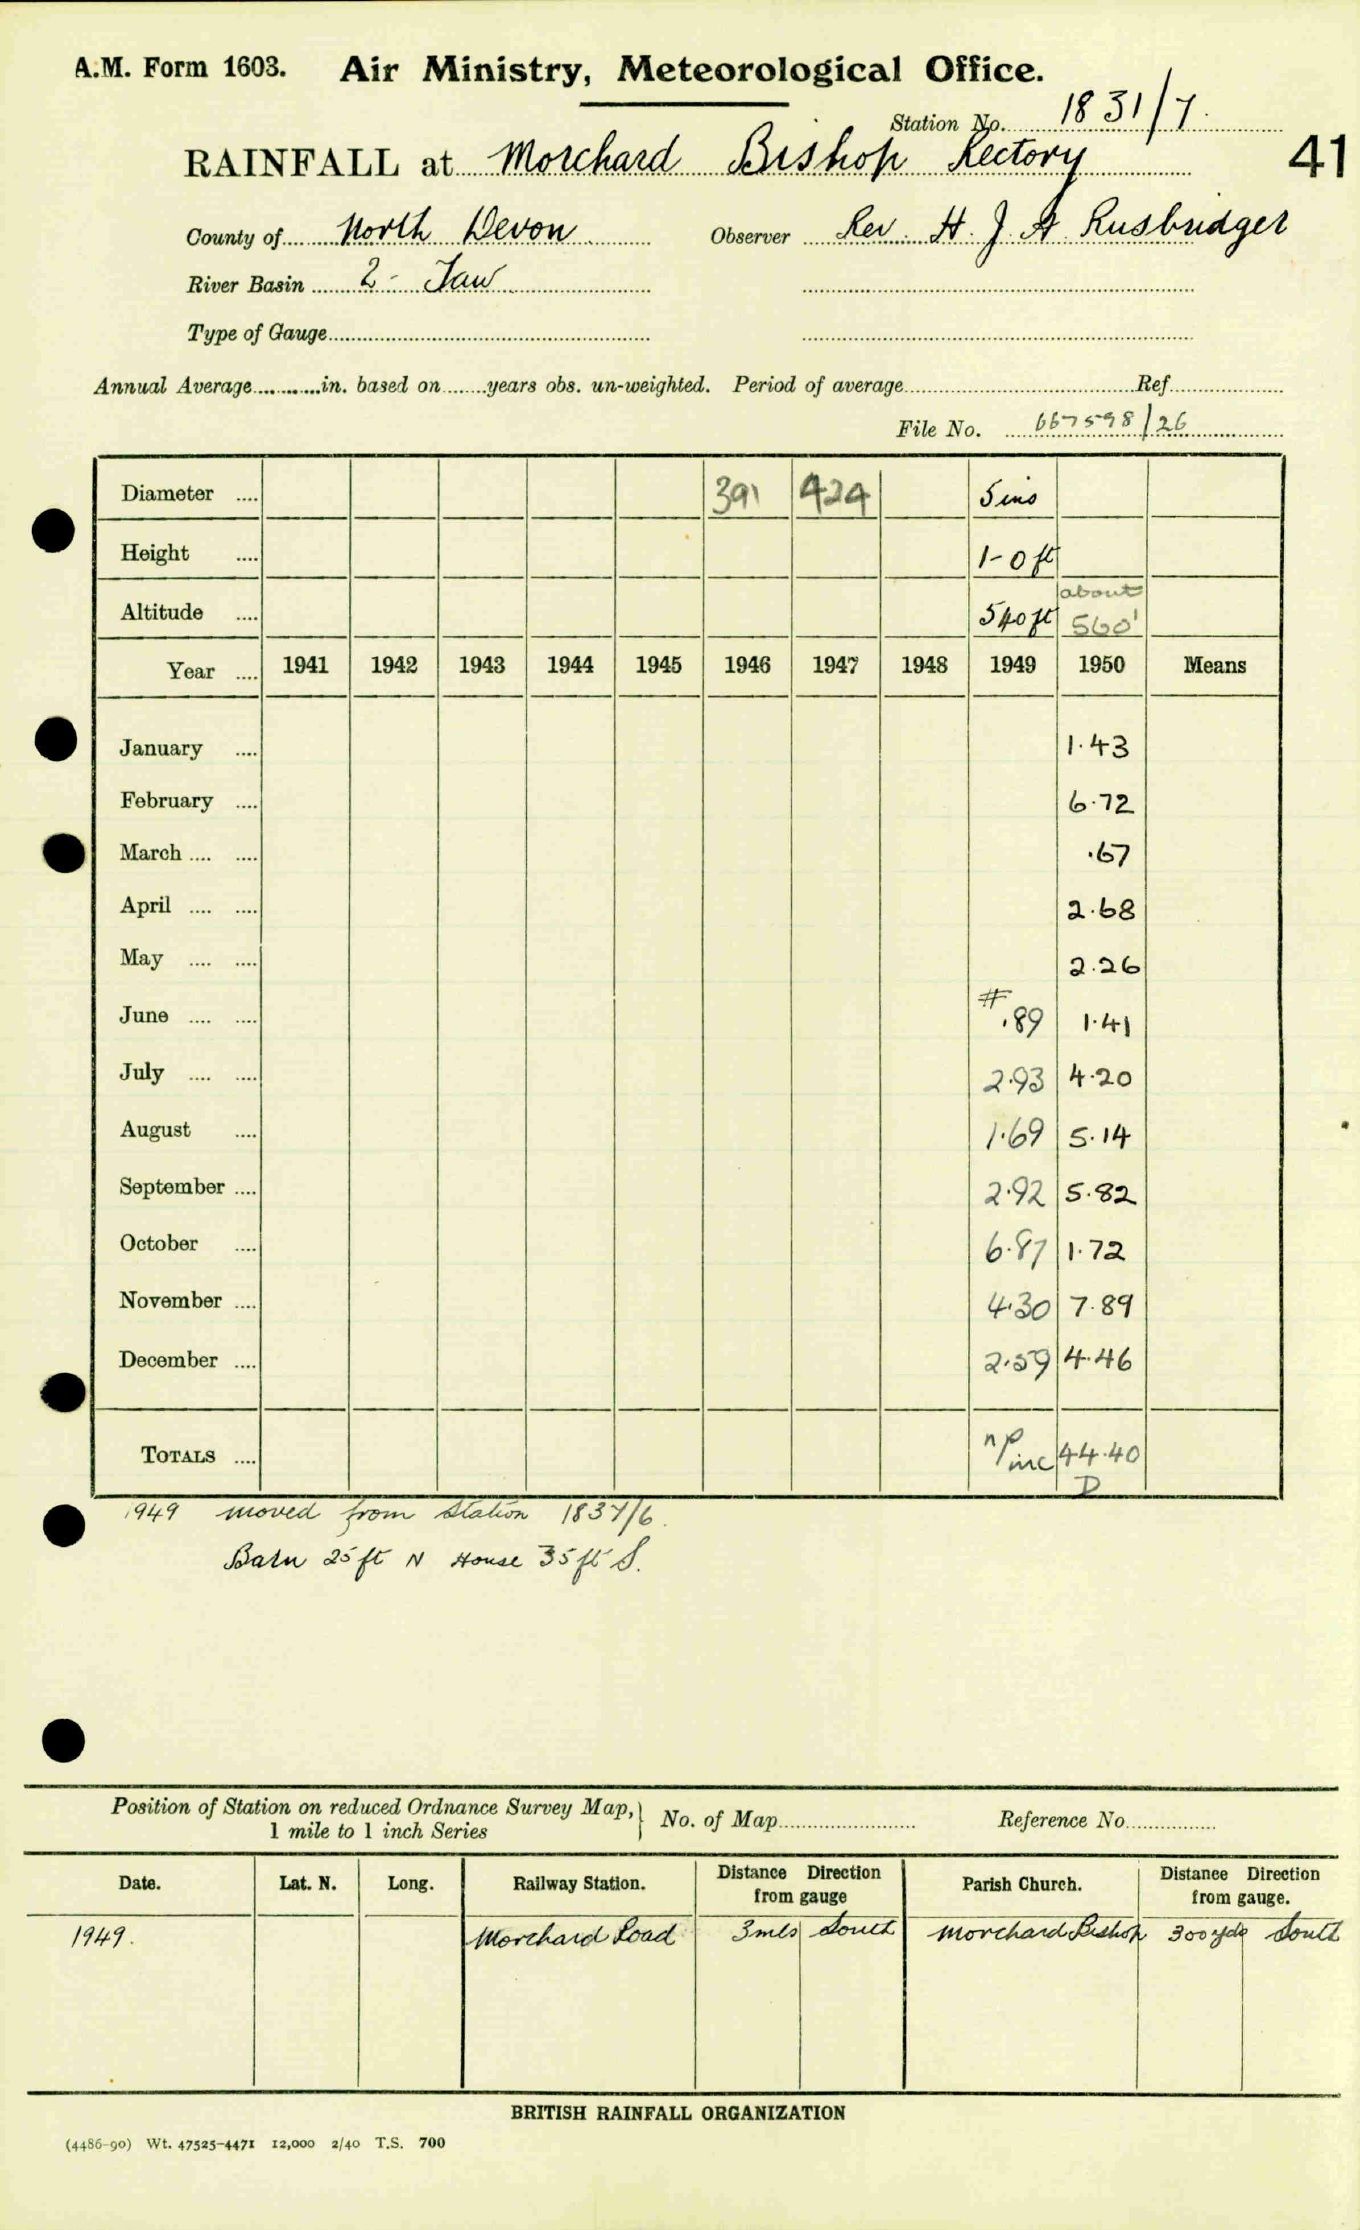 A.M. Form 1603. Air Ministry, Meteorological Office.
Station No. 1831/7.
RAINFALL at Morchard Bishop Rectory 41
County of North Devon Observer Rev. H. J. A Rusbridger
River Basin 2 - Taw
Type of Gauge
Annual Average in. based on years obs. un-weighted. Period of average Ref
File No. 667598/26
Diameter 391 424 5 ins
Height 1-0 ft
Altitude 540 ft about 560'
Year 1941 1942 1943 1944 1945 1946 1947 1948 1949 1950 Means
January 1.43
February 6.72
March .67
April 2.68
May 2.26
June # .89 1.41
July 2.93 4.20
August 1.69 5.14
September 2.92 5.82
October 6.87 1.72
November 4.30 7.89
December 2.59 4.46
TOTALS np/inc 44.40
D
1949 moved from station 1837/6.
Barn 25 ft N House 35 ft S.
Position of Station on reduced Ordnance Survey Map, 1 mile to 1 inch Series } No. of Map Reference No.
Date. Lat. N. Long. Railway Station. Distance Direction from gauge Parish Church. Distance Direction from gauge.
1949. Morchard Road 3 mls South Morchard Bishop 300 yds South
BRITISH RAINFALL ORGANIZATION
(4486-90) Wt. 47525-4471 12,000 2/40 T.S. 700